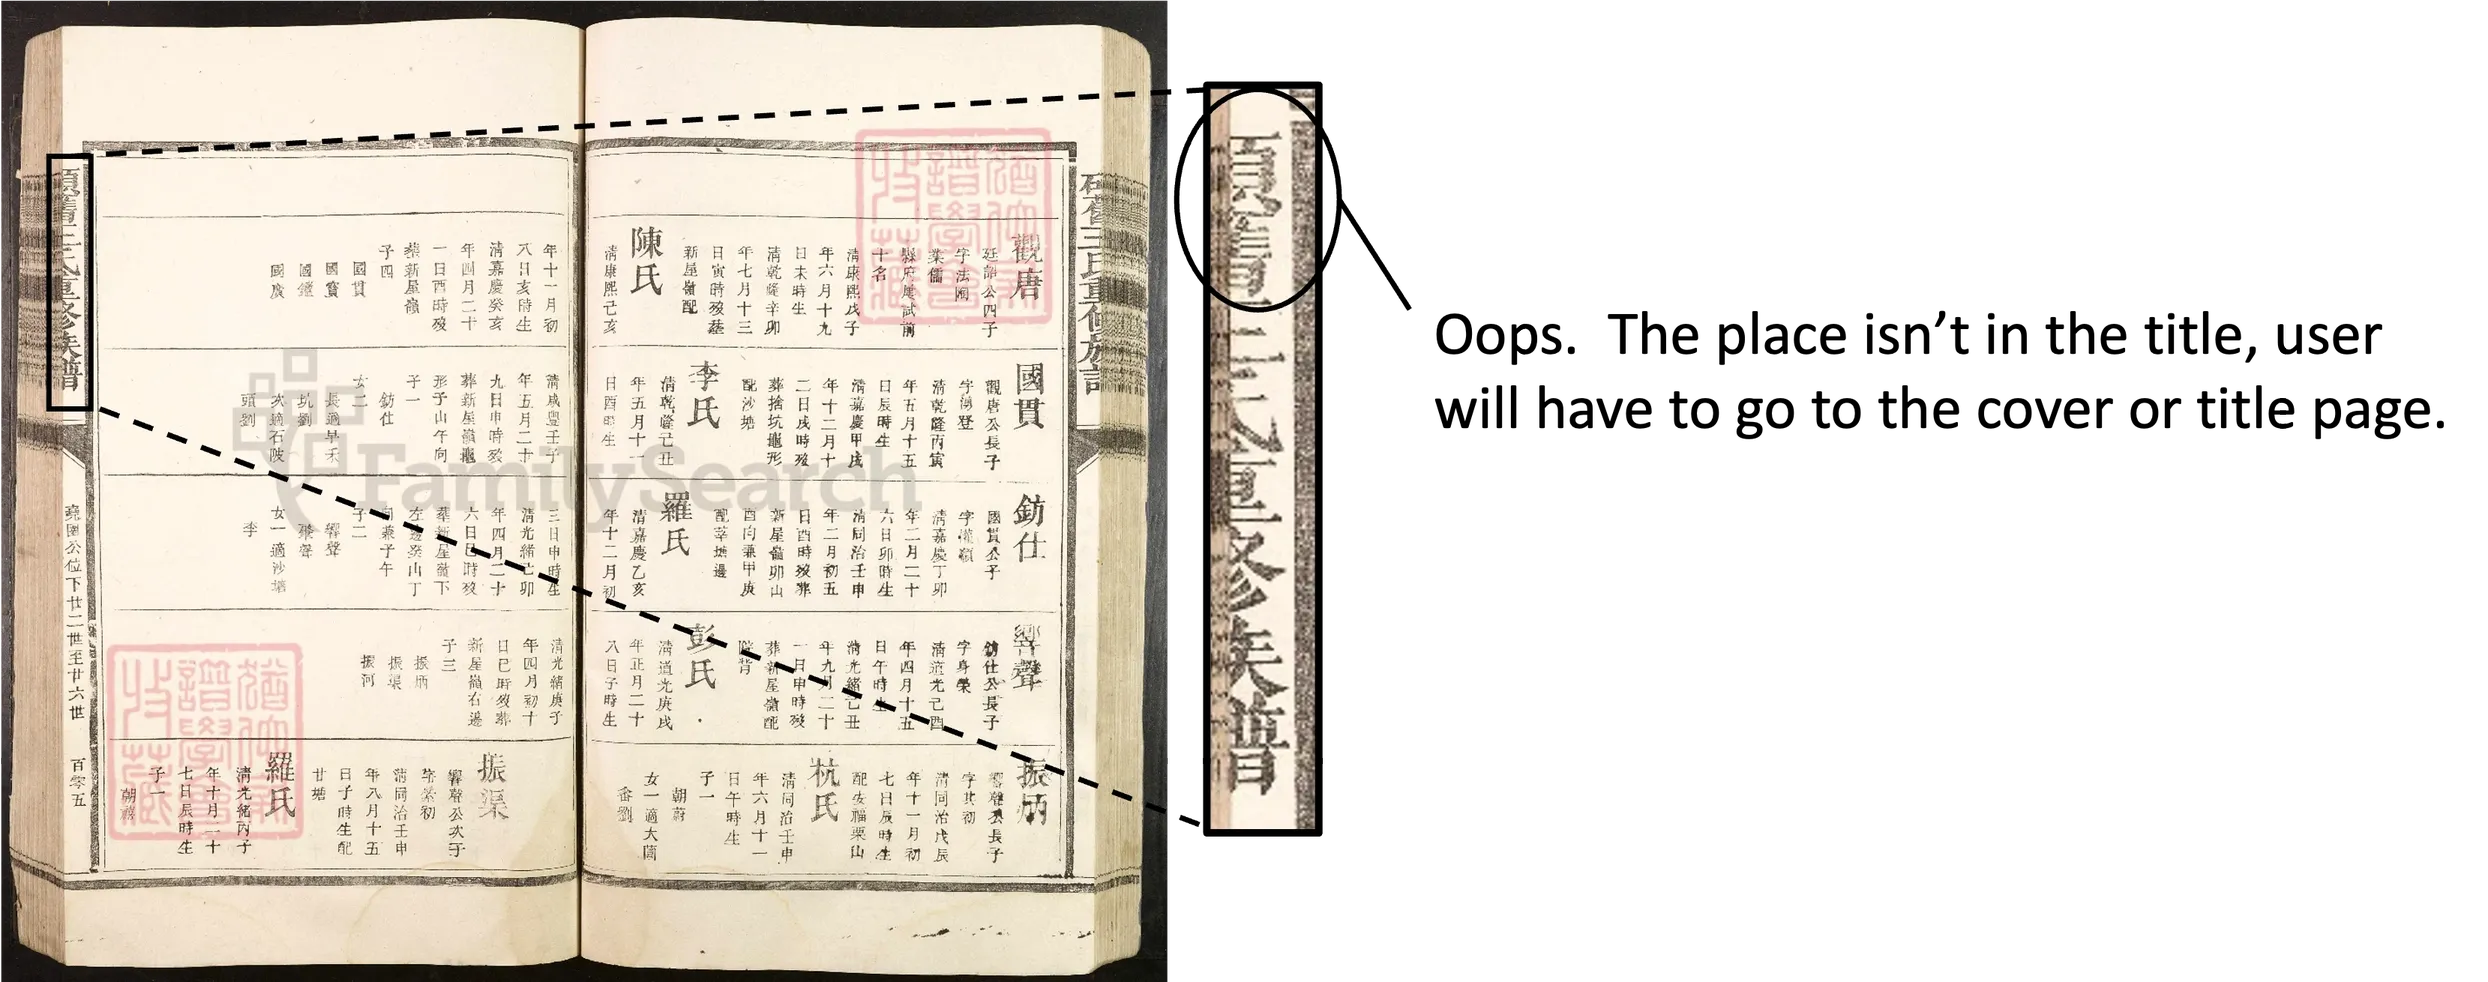 觀唐
廷詔公四子
業儒
縣府屢試前
十名
清康熙戊子
年六月十九
日未時生
清乾隆辛卯
年七月十三
日寅時歿葬
新屋嶺配
陳氏
清康熙己亥
年十一月初
八日亥時生
清嘉慶癸亥
年四月二十
一日酉時歿
葬新屋嶺
子四
國貫
國寶
國廣
國貫
觀唐公長子
清乾隆丙寅
年五月十五
日辰時生
清嘉慶甲戌
年十二月十
二日戌時歿
配沙塘
李氏
清乾隆己丑
年五月十一
日酉時生
清咸豐壬子
年五月二十
九日申時歿
葬新屋嶺
形子山午向
子一
鈁仕
女二
長適早禾
坑劉
次適石陂
頭劉
鈁仕
國貫公子
清嘉慶丁卯
年二月二十
六日卯時生
清同治壬申
年二月初五
日酉時歿葬
新屋嶺卯山
酉向兼甲庚
羅氏
清嘉慶乙亥
年十二月初
三日申時生
清光緒己卯
年四月二十
六日巳時歿
葬新屋嶺下
左邊癸山丁
向兼子午
子二
響聲
女一適沙塘
李
響聲
鈁仕公長子
字身榮
清道光己酉
年四月十五
日午時生
清光緒己丑
年九月二十
一日申時歿
葬新屋嶺配
彭氏
清道光庚戌
年正月二十
八日子時生
清光緒庚子
年四月初十
日巳時歿葬
新屋嶺右邊
子三
振炳
振渠
振河
振炳
響聲公長子
字其初
清同治戊辰
年十一月初
七日辰時生
配安福栗山
杭氏
清同治壬申
年六月十一
日午時生
子一
朝蔚
女一適大岡
劉
振渠
響聲公次子
清同治壬申
年八月十五
日子時生配
廿塘
羅氏
清光緒丙子
年十月二十
七日辰時生
子一
堯圃公位下廿二世至廿六世
百零五
FamilySearch
Oops. The place isn’t in the title, user
will have to go to the cover or title page.